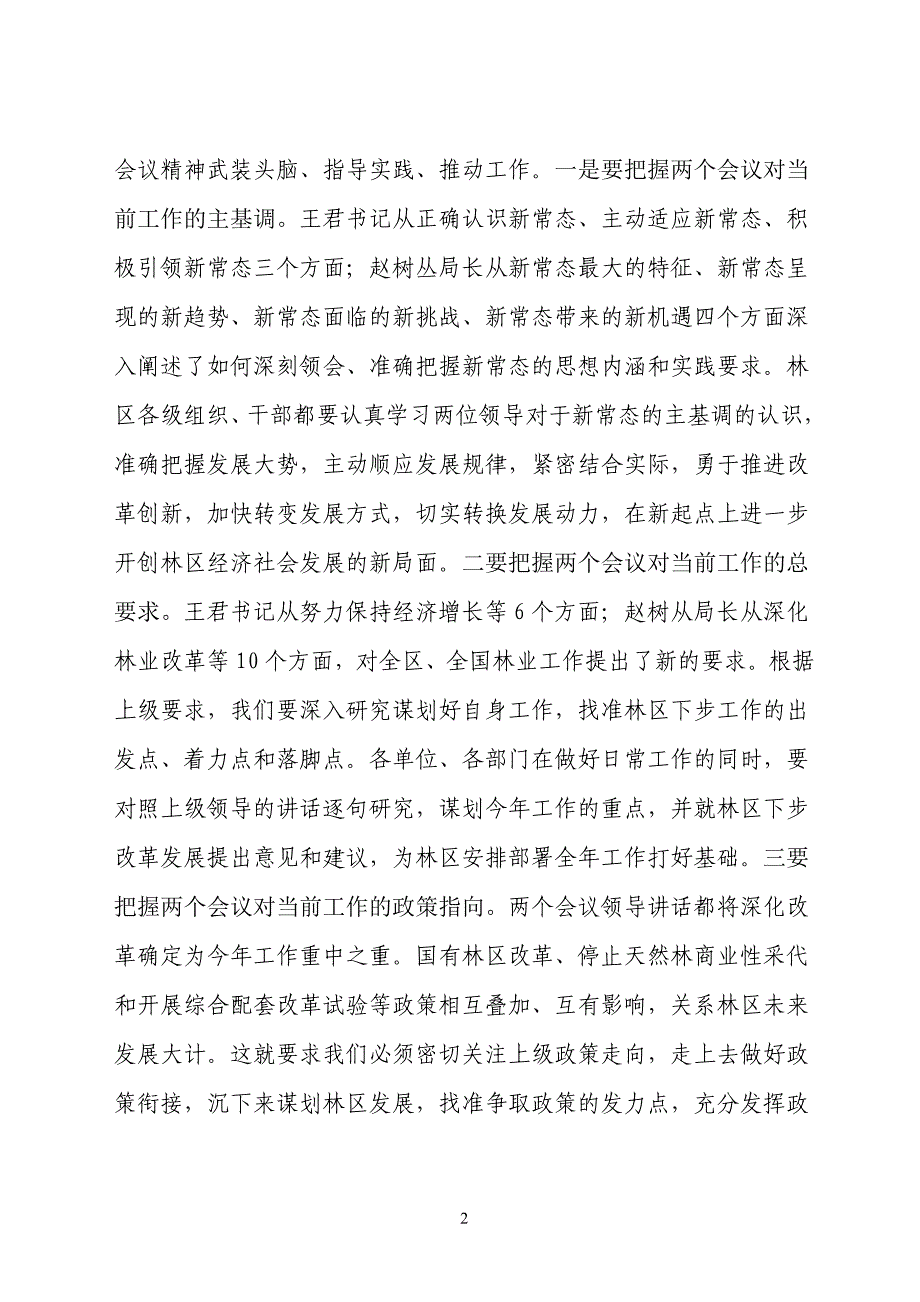 会议精神武装头脑、指导实践、推动工作。一是要把握两个会议对当
前工作的主基调。王君书记从正确认识新常态、主动适应新常态、积
极引领新常态三个方面；赵树丛局长从新常态最大的特征、新常态呈
现的新趋势、新常态面临的新挑战、新常态带来的新机遇四个方面深
入阐述了如何深刻领会、准确把握新常态的思想内涵和实践要求。林
区各级组织、干部都要认真学习两位领导对于新常态的主基调的认识，
准确把握发展大势，主动顺应发展规律，紧密结合实际，勇于推进改
革创新，加快转变发展方式，切实转换发展动力，在新起点上进一步
开创林区经济社会发展的新局面。二要把握两个会议对当前工作的总
要求。王君书记从努力保持经济增长等 6 个方面；赵树从局长从深化
林业改革等 10 个方面，对全区、全国林业工作提出了新的要求。根据
上级要求，我们要深入研究谋划好自身工作，找准林区下步工作的出
发点、着力点和落脚点。各单位、各部门在做好日常工作的同时，要
对照上级领导的讲话逐句研究，谋划今年工作的重点，并就林区下步
改革发展提出意见和建议，为林区安排部署全年工作打好基础。三要
把握两个会议对当前工作的政策指向。两个会议领导讲话都将深化改
革确定为今年工作重中之重。国有林区改革、停止天然林商业性采代
和开展综合配套改革试验等政策相互叠加、互有影响，关系林区未来
发展大计。这就要求我们必须密切关注上级政策走向，走上去做好政
策衔接，沉下来谋划林区发展，找准争取政策的发力点，充分发挥政
2